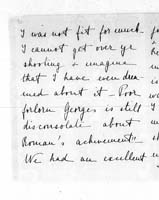 I was not fit for much
I cannot get over yr
shooting & imagine
that I have even drea
med about it – Poor
forlorn Georges is still
disconsolate about
Roman's achievement"
We had an excellent